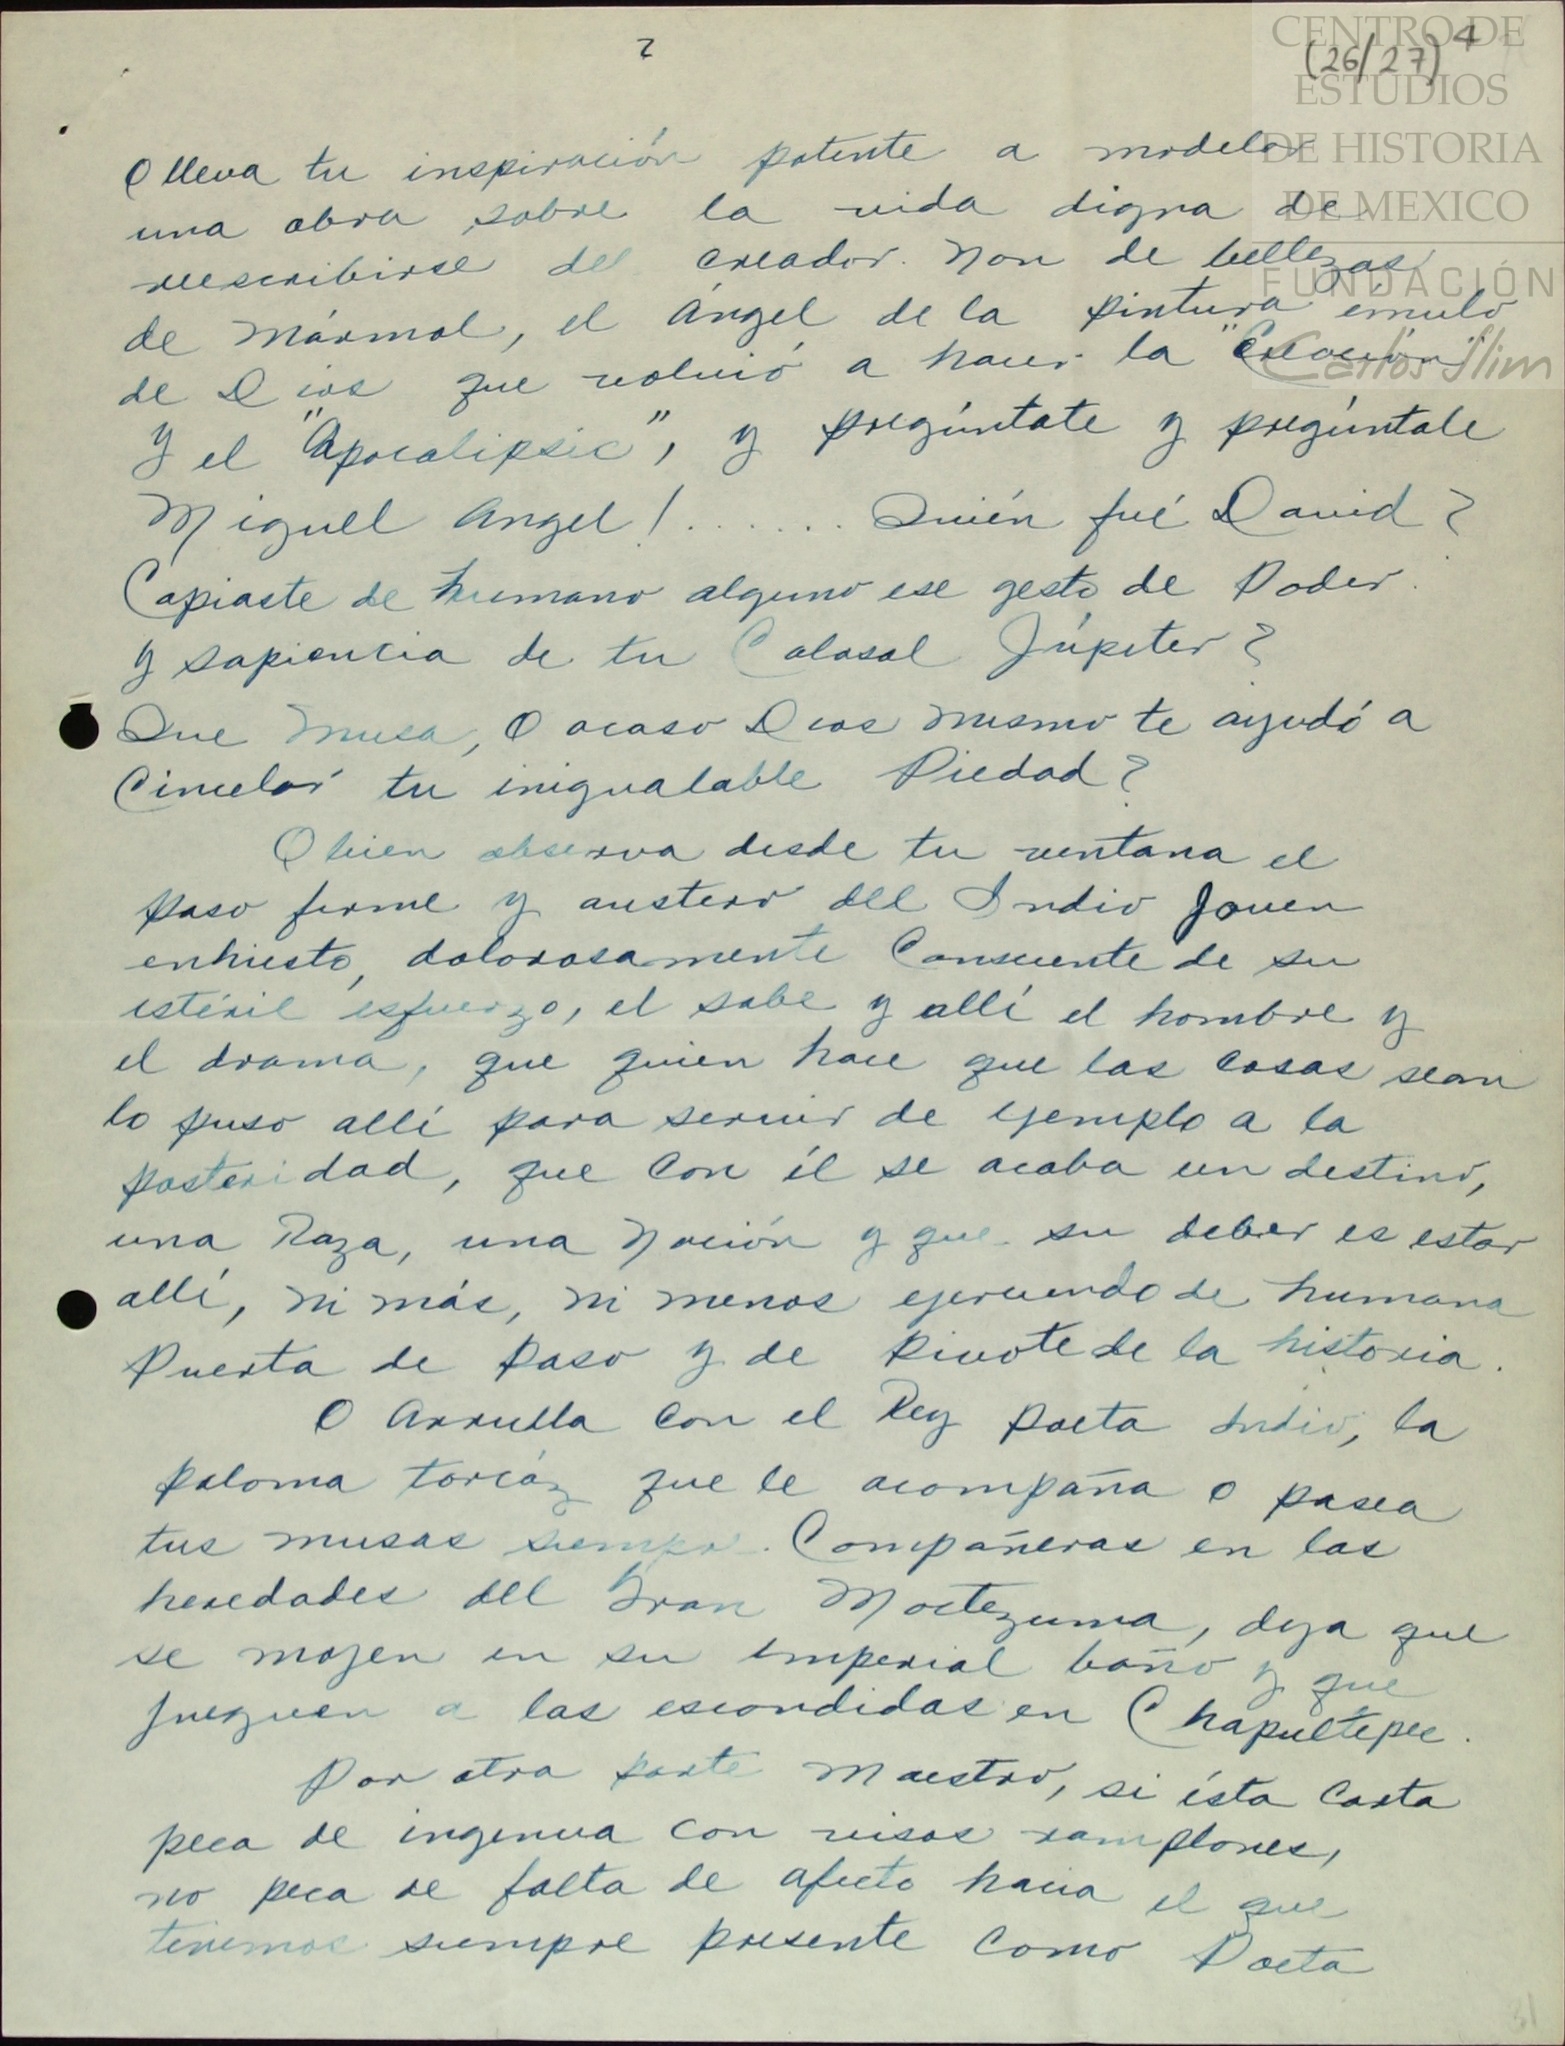 2
(26/27) 4
CENTRO DE
ESTUDIOS
DE HISTORIA
DE MEXICO
FUNDACIÓN
Carlos Slim
O lleva tu inspiración potente a modelar
una obra sobre la vida digna de
reescribirse del creador. Non de bellezas
de Mármol, el Ángel de la pintura émulo
de Dios que volvió a hacer la "Creación"
y el "Apocalipsic", y pregúntate y pregúntale
Miguell Angel! ...... Quién fué David?
Copiaste de humano alguno ese gesto de Poder
y sapiencia de tu Colosal Júpiter?
Que Musa, O acaso Dios mismo te ayudó a
Cincelar tu inigualable Piedad?
O bien observa desde tu ventana el
paso firme y austero del Indio Joven
enhiesto, dolorosamente Consciente de su
estéril esfuerzo, el sabe y allí el hombre y
el drama, que quien hace que las cosas sean
lo puso allí para servir de ejemplo a la
posteridad, que con él se acaba un destino,
una Raza, una Nación y que su deber es estar
allí, ni más, ni menos ejerciendo de humana
Puerta de Paso y de Pivote de la historia.
O Arrulla con el Rey Poeta Indio, la
paloma torcáz que le acompaña o pasea
tus musas siempre Compañeras en las
heredades del Gran Moctezuma, deja que
se mojen en su imperial baño y que
jueguen a las escondidas en Chapultepec.
Por otra parte Maestro, si ésta Carta
peca de ingenua con visos ramplones,
no peca de falta de afecto hacia el que
tenemos siempre presente como Poeta